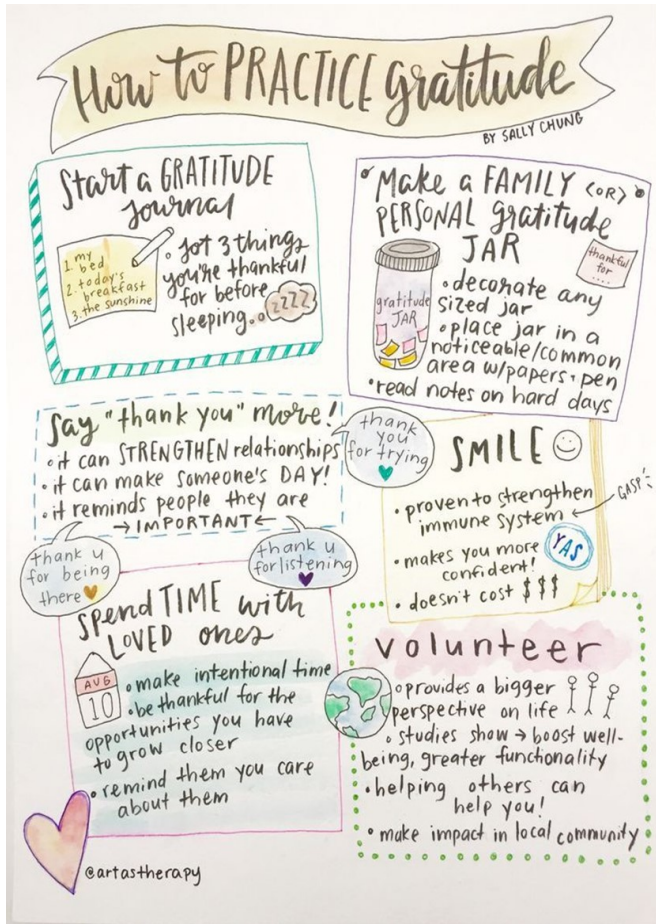 How to PRACTICE gratitude
BY SALLY CHUNG
Start a GRATITUDE
journal
1. my
bed
2. today's
breakfast
3. the sunshine
• Jot 3 things
you're thankful
for before
sleeping..
zzzz
Make a FAMILY <OR>
PERSONAL gratitude
JAR
thankful
for
....
gratitude
JAR
• decorate any
sized jar
• place jar in a
noticeable/common
area w/papers + pen
• read notes on hard days
Say "thank you" more!
• it can STRENGTHEN relationships
• it can make someone's DAY!
• it reminds people they are
→ IMPORTANT ←
thank
you
for trying
thank u
for being
there
thank u
for listening
SMILE
• proven to strengthen
immune system ←
GASP!
• makes you more
confident!
YAS
• doesn't cost $$$
Spend TIME with
LOVED ones
AUG
10
• make intentional time
• be thankful for the
opportunities you have
to grow closer
• remind them you care
about them
volunteer
• provides a bigger
perspective on life
• studies show → boost well-
being, greater functionality
• helping others can
help you!
• make impact in local community
@artastherapy